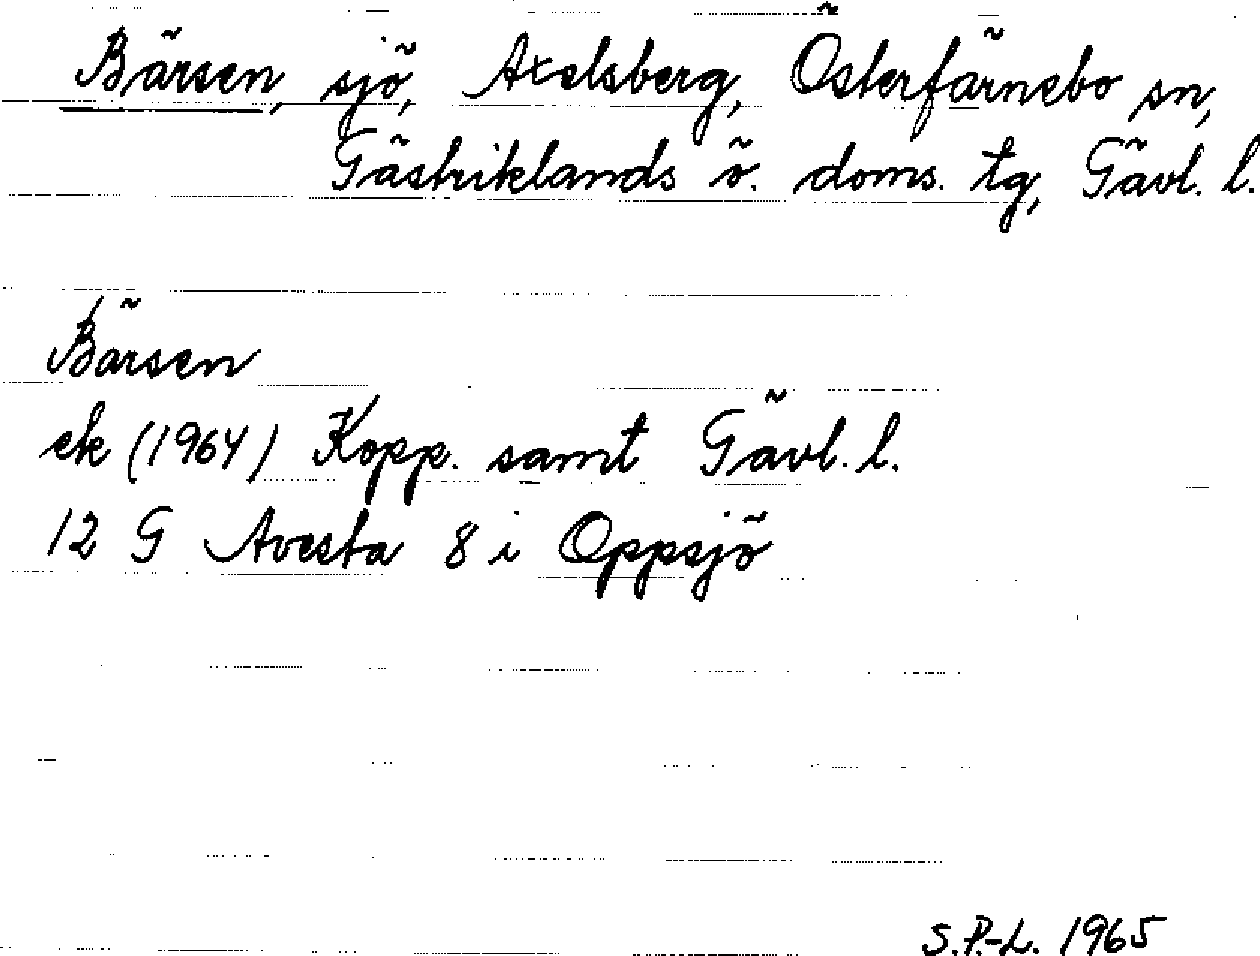 Bärsen, sjö, Axelsberg, Österfärnebo sn,
Gästriklands ö. doms. tg, Gävl. l.
Bärsen
ek (1964) Kopp. samt Gävl. l.
12 G Avesta 8 i Oppsjö
S.P.-L. 1965